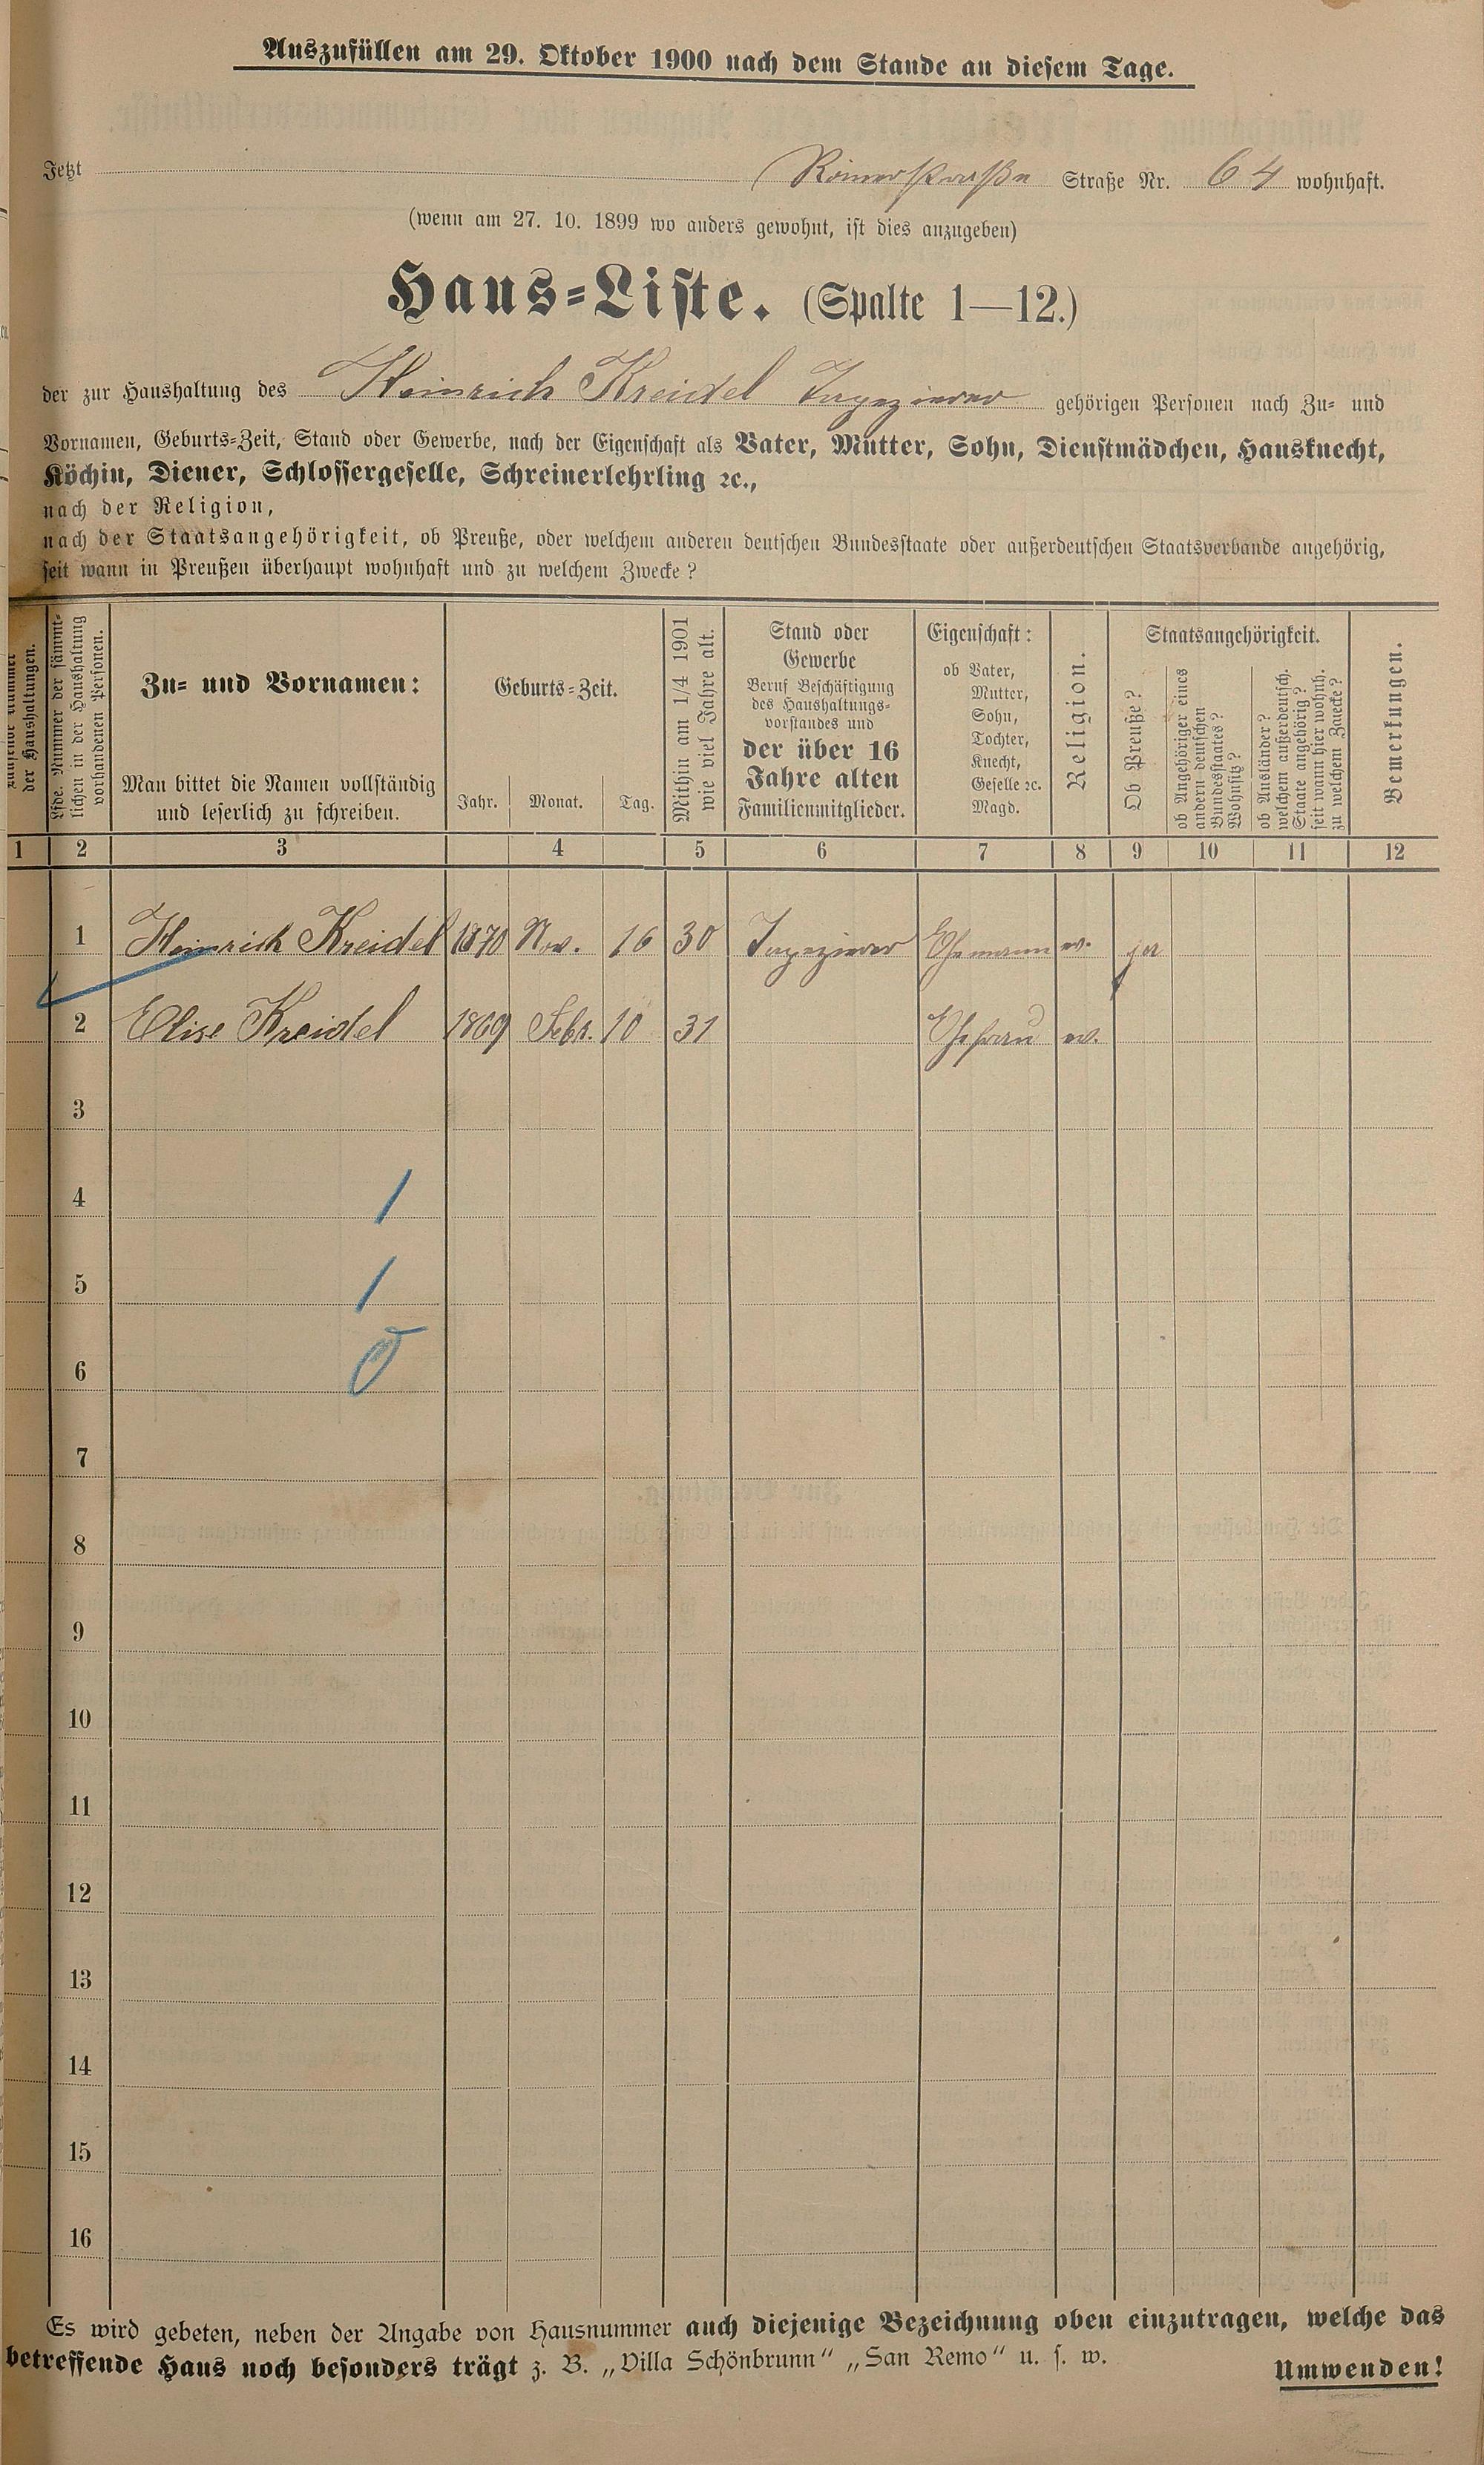 Auszufüllen am 29. Oktober 1900 nach dem Stande an diesem Tage.
Jetzt Römerstraße Straße Nr. 64 wohnhaft.
(wenn am 27. 10. 1899 wo anders gewohnt, ist dies anzugeben)
Haus-Liste. (Spalte 1—12.)
der zur Haushaltung des Heinrich Kreidel Tapezierer gehörigen Personen nach Zu- und
Vornamen, Geburts-Zeit, Stand oder Gewerbe, nach der Eigenschaft als Vater, Mutter, Sohn, Dienstmädchen, Hausknecht,
Köchin, Diener, Schlossergeselle, Schreinerlehrling ꝛc.,
nach der Religion,
nach der Staatsangehörigkeit, ob Preuße, oder welchem anderen deutschen Bundesstaate oder außerdeutschen Staatsverbande angehörig,
seit wann in Preußen überhaupt wohnhaft und zu welchem Zwecke?
der Haushaltungen.
Lfde. Nummer der sämmt-
lichen in der Haushaltung
vorhandenen Personen.
Zu- und Vornamen:
Man bittet die Namen vollständig
und leserlich zu schreiben.
Geburts-Zeit.
Jahr. Monat. Tag.
Mithin am 1/4 1901
wie viel Jahre alt.
Stand oder
Gewerbe
Beruf Beschäftigung
des Haushaltungs-
vorstandes und
der über 16
Jahre alten
Familienmitglieder.
Eigenschaft:
ob Vater,
Mutter,
Sohn,
Tochter,
Knecht,
Geselle ꝛc.
Magd.
Religion.
Staatsangehörigkeit.
Ob Preuße?
ob Angehöriger eines
andern deutschen
Bundesstaates?
Wohnsitz?
ob Ausländer?
welchem außerdeutsch.
Staate angehörig?
seit wann hier wohnh.
zu welchem Zwecke?
Bemerkungen.
1 2 3 4 5 6 7 8 9 10 11 12
1 Heinrich Kreidel 1870 Nov. 16 30 Tapezierer Ehemann ev. ja
2 Elise Kreidel 1869 Febr. 10 31 Ehefrau ev.
3
4 1
5 1
6 0
7
8
9
10
11
12
13
14
15
16
Es wird gebeten, neben der Angabe von Hausnummer auch diejenige Bezeichnung oben einzutragen, welche das
betreffende Haus noch besonders trägt z. B. „Villa Schönbrunn“ „San Remo“ u. s. w.
Umwenden!